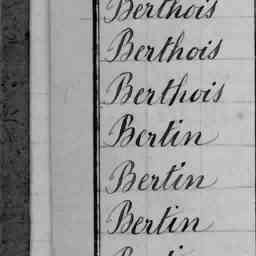 Berthois
Berthois
Berthois
Bertin
Bertin
Bertin